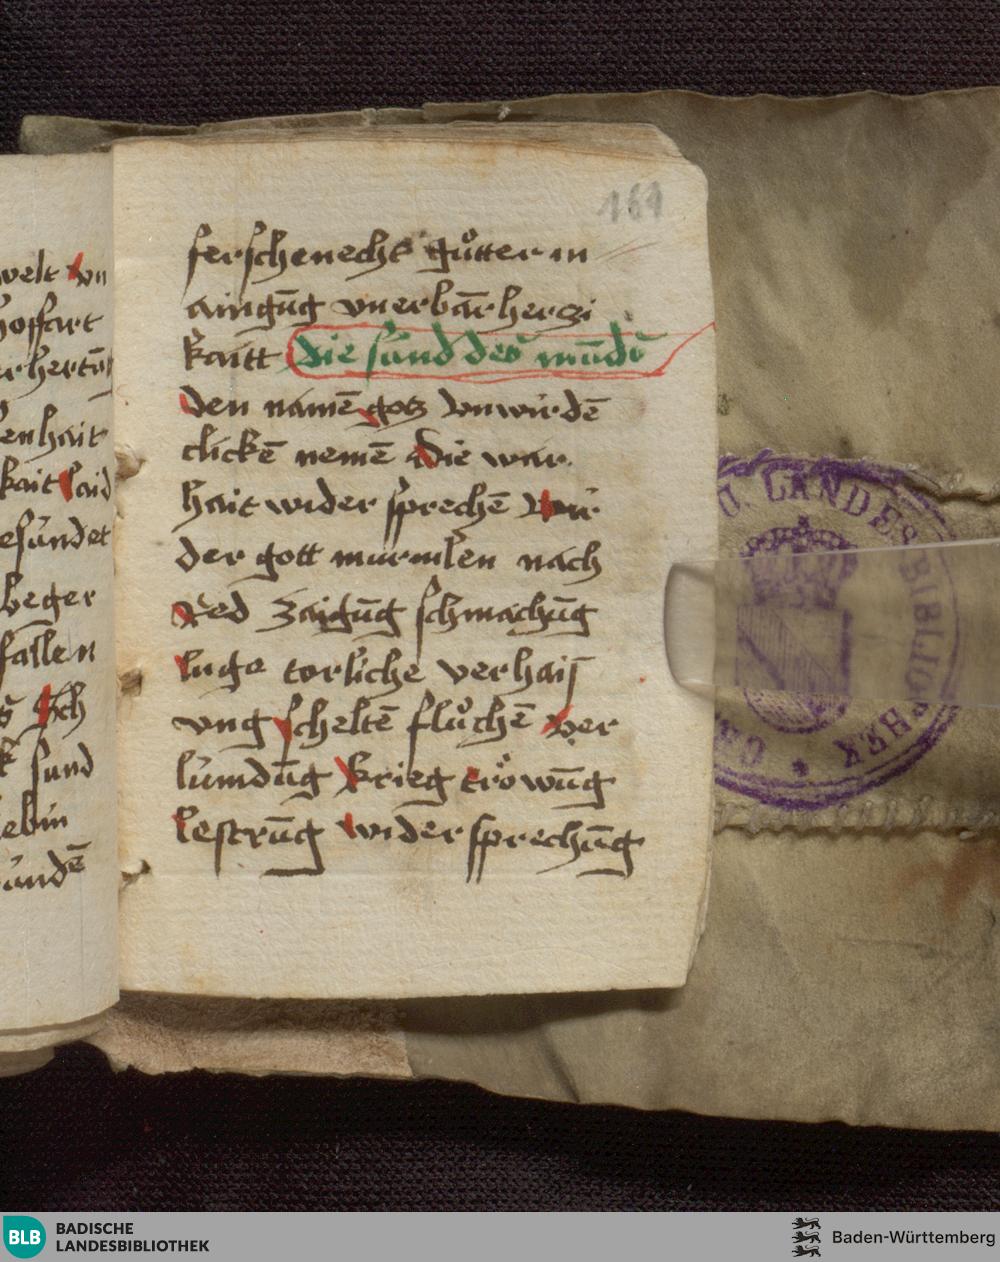 welt vn
hoffart
rhertūg
enhait
kait laid
esundet
beger
fallen
sch
sund
lebin
undē
161
ferschenecht guͦtter in
aingūg vnerbārherzi
kaitt die sünd des mūds
den namē gotz vnwürdē
clickē nemē die war
hait wider sprechē wi
der gott murmlen nach
red zaigūg schmachūg
luge torliche verhaiſ
vng scheltē fluͦchē ver
lümdūg krieg tröwūg
lestrūg wider sprechūg
LANDESBIBLIOTHEK
BLB
BADISCHE
LANDESBIBLIOTHEK
Baden-Württemberg